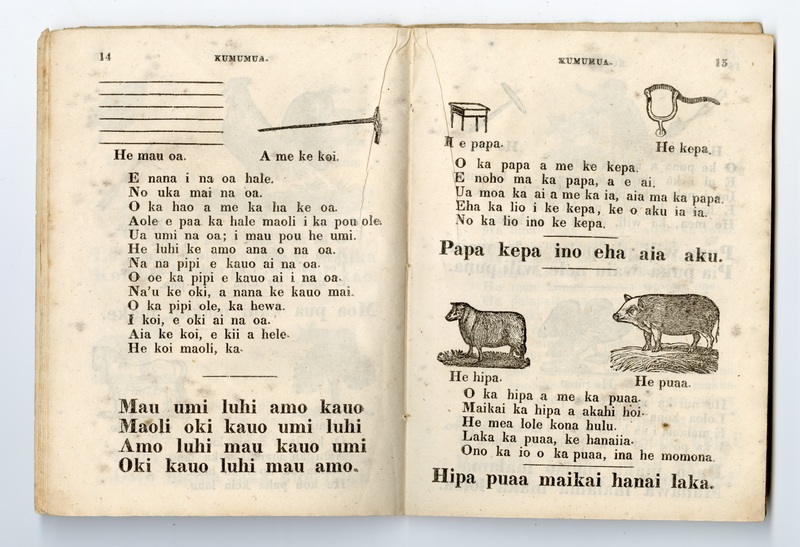 14
KUMUMUA.
He mau oa.
A me ke koi.
E nana i na oa hale.
No uka mai na oa.
O ka hao a me ka ha ke oa.
Aole e paa ka hale maoli i ka pou ole.
Ua umi na oa; i mau pou he umi.
He luhi ke amo ana o na oa.
Na na pipi e kauo ai na oa.
O oe ka pipi e kauo ai i na oa.
Na'u ke oki, a nana ke kauo mai.
O ka pipi ole, ka hewa.
I koi, e oki ai na oa.
Aia ke koi, e kii a hele.
He koi maoli, ka.
Mau umi luhi amo kauo
Maoli oki kauo umi luhi
Amo luhi mau kauo umi
Oki kauo luhi mau amo.
KUMUMUA.
15
He papa.
He kepa.
O ka papa a me ke kepa.
E noho ma ka papa, a e ai.
Ua moa ka ai a me ka ia, aia ma ka papa.
Eha ka lio i ke kepa, ke o aku ia ia.
No ka lio ino ke kepa.
Papa kepa ino eha aia aku.
He hipa.
He puaa.
O ka hipa a me ka puaa.
Maikai ka hipa a akahi hoi.
He mea lole kona hulu.
Laka ka puaa, ke hanaiia.
Ono ka io o ka puaa, ina he momona.
Hipa puaa maikai hanai laka.